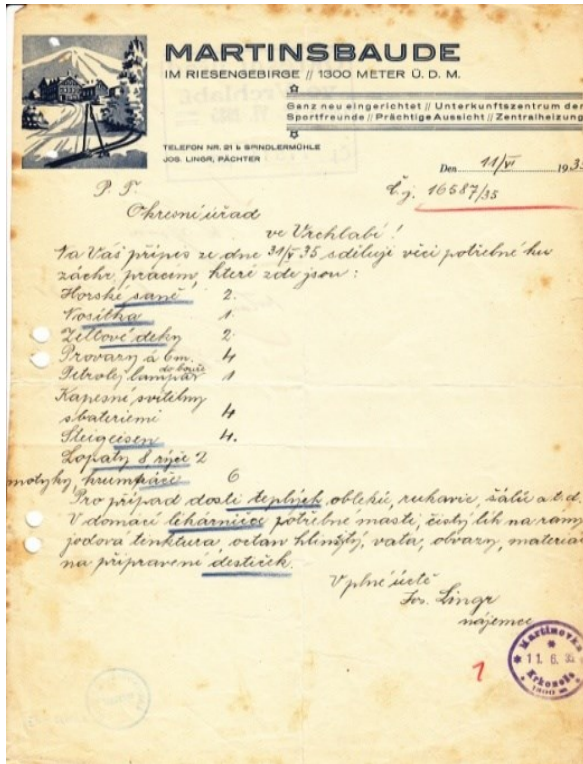 MARTINSBAUDE
IM RIESENGEBIRGE // 1300 METER Ü. D. M.
Ganz neu eingerichtet // Unterkunftszentrum der
Sportfreunde // Prächtige Aussicht // Zentralheizung
TELEFON NR. 21 b SPINDLERMÜHLE
JOS. LINGR, PÄCHTER
Den 11/VI 193
P. T. Č.j. 16587/35
Okresní úřad
ve Vrchlabí!
Na Váš přípis ze dne 31/V 35 sděluji věci potřebné ku
záchr. pracem, které zde jsou:
Horské saně 2.
Nosítka 1.
Zeltové deky 2.
Provazy à 6m. 4
Petrolej lampář do bouře 1
Kapesné svítilny
s bateriemi 4
Steigeisen 4.
Lopaty 8, rýče 2
motyky, krumpáče 6
Pro případ dosti teplých obleků, rukavic, šálů a t. d.
V domací lékárničce potřebné masti, čistý líh na rany
jodová tinktura, octan hlinitý, vata, obvazy, material
na připravení destiček.
V plné úctě
Jos. Lingr
nájemce
Martinovka
11. 6. 35
Krkonoše
1